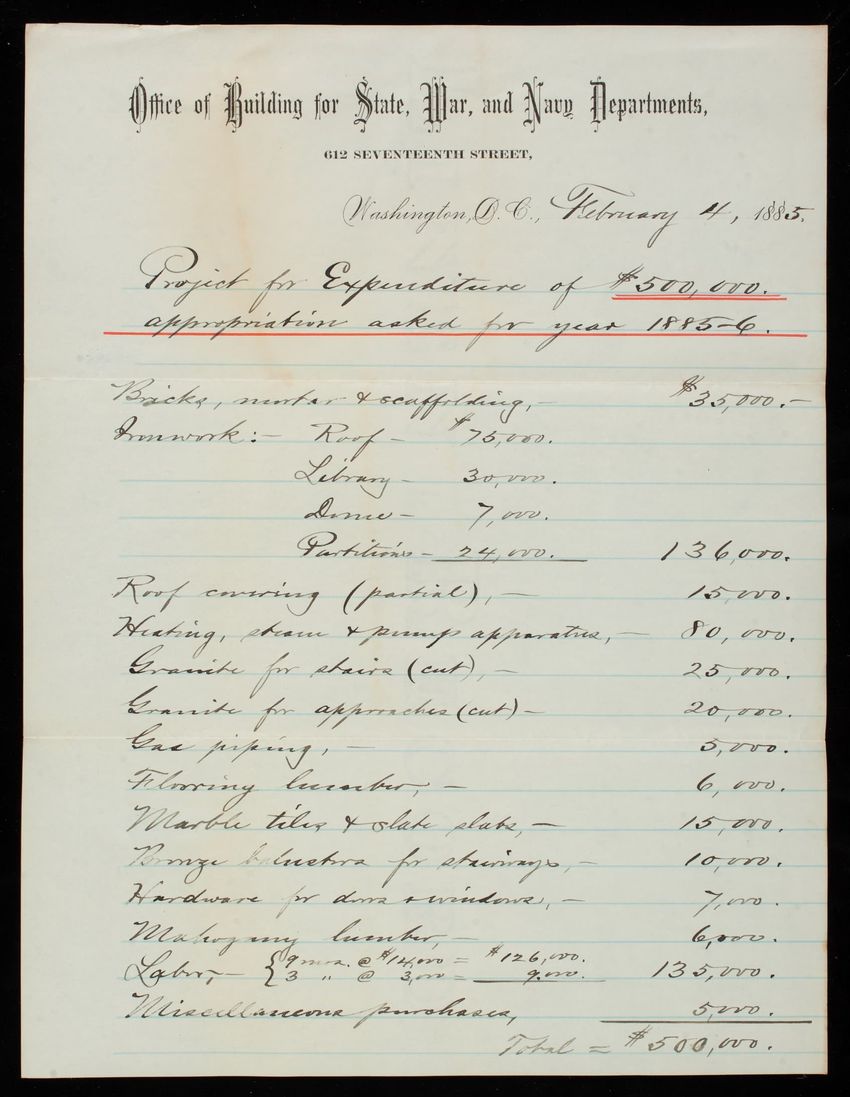 Office of Building for State, War, and Navy Departments,
612 SEVENTEENTH STREET,
Washington, D.C., February 4, 1885.
Project for Expenditure of $500,000.
appropriation asked for year 1885-6.
Bricks, mortar & scaffolding, — $35,000.—
Ironwork:— Roof — $75,000.
Library — 30,000.
Dome — 7,000.
Partitions — 24,000. 136,000.
Roof covering (partial), — 15,000.
Heating, steam & pump apparatus, — 80,000.
Granite for stairs (cut), — 25,000.
Granite for approaches (cut) — 20,000.
Gas piping, — 5,000.
Flooring lumber, — 6,000.
Marble tiles & slate slabs, — 15,000.
Bronze balusters for stairways, — 10,000.
Hardware for doors & windows, — 7,000.
Mahogany lumber, — 6,000.
Labor, — { 9 mos. @ $14,000 = $126,000.
3 " @ 3,000 = 9,000. 135,000.
Miscellaneous purchases, 5,000.
Total = $500,000.